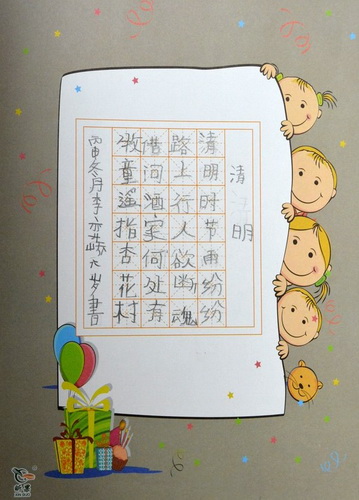 清明
清明时节雨纷纷
路上行人欲断魂
借问酒家何处有
牧童遥指杏花村
丙申冬月李亦 六岁書